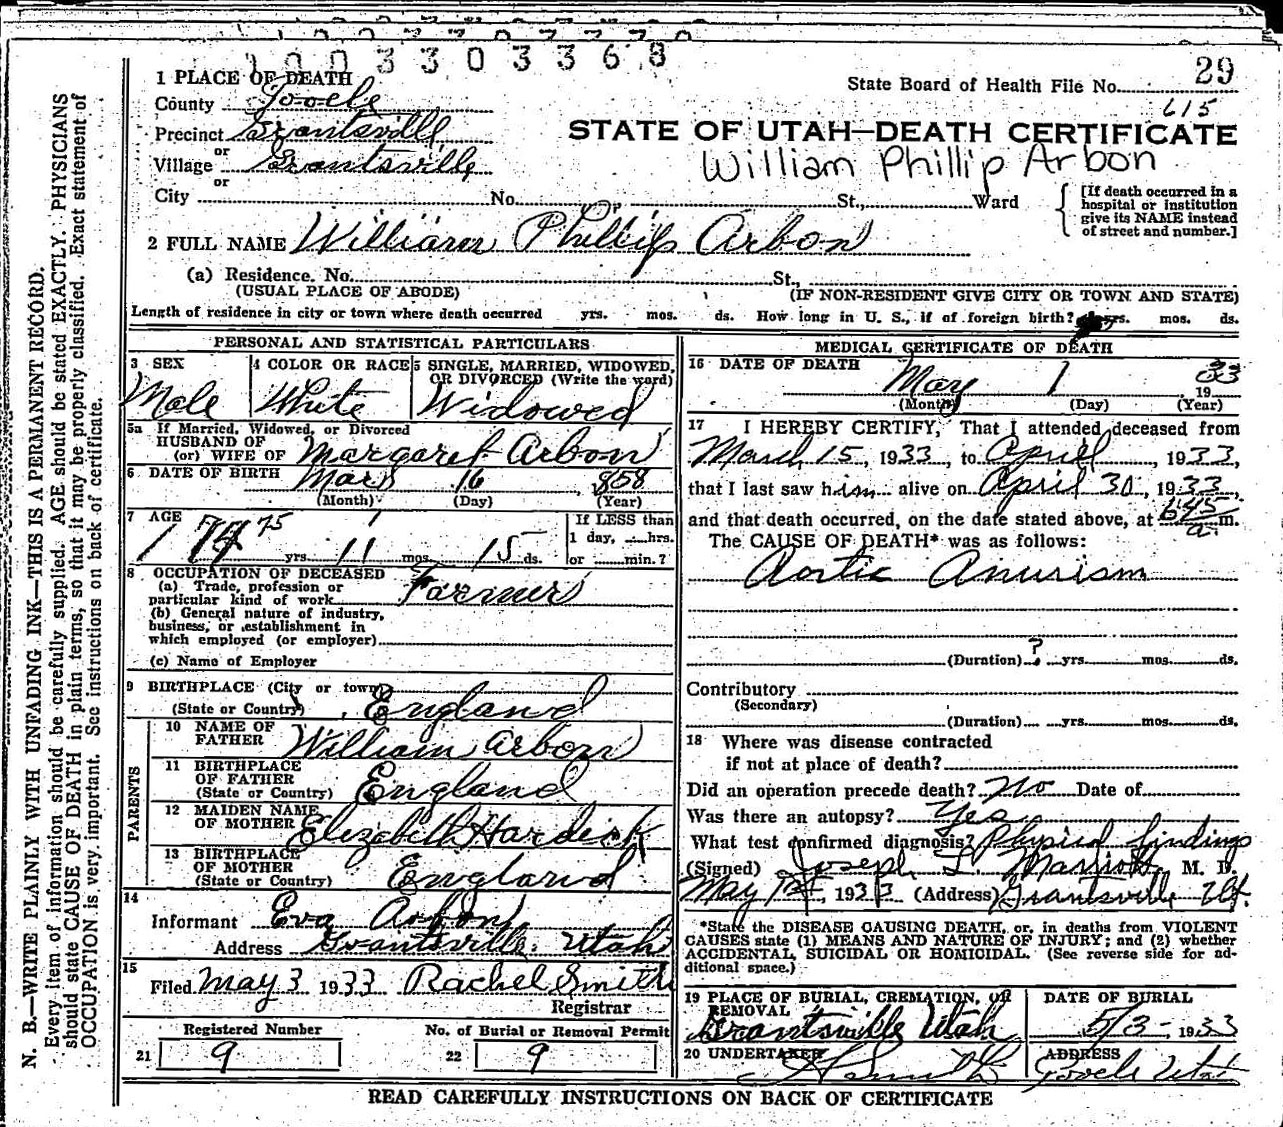 1 0 0 3 3 0 3 3 6 8
1 PLACE OF DEATH
State Board of Health File No. 29
615
County Tooele
Precinct Grantsville
STATE OF UTAH—DEATH CERTIFICATE
or
Village Grantsville
William Phillip Arbon
or
City No. St., Ward
[If death occurred in a
hospital or institution
give its NAME instead
of street and number.]
2 FULL NAME William Phillip Arbon
(a) Residence. No. St.,
(USUAL PLACE OF ABODE) (IF NON-RESIDENT GIVE CITY OR TOWN AND STATE)
Length of residence in city or town where death occurred yrs. mos. ds. How long in U. S., if of foreign birth? yrs. mos. ds.
PERSONAL AND STATISTICAL PARTICULARS
3 SEX
Male
4 COLOR OR RACE
White
5 SINGLE, MARRIED, WIDOWED,
OR DIVORCED (Write the word)
Widowed
5a If Married, Widowed, or Divorced
HUSBAND OF
(or) WIFE OF Margaret Arbon
6 DATE OF BIRTH Mar 16, 858
(Month) (Day) (Year)
7 AGE
75 yrs. 11 mos. 15 ds.
If LESS than
1 day, hrs.
or min.?
8 OCCUPATION OF DECEASED
(a) Trade, profession or
particular kind of work Farmer
(b) General nature of industry,
business, or establishment in
which employed (or employer)
(c) Name of Employer
9 BIRTHPLACE (City or town)
(State or Country) England
PARENTS
10 NAME OF
FATHER William Arbon
11 BIRTHPLACE
OF FATHER
(State or Country) England
12 MAIDEN NAME
OF MOTHER Elizabeth Hardick
13 BIRTHPLACE
OF MOTHER
(State or Country) England
14
Informant Eva Arbon
Address Grantsville, Utah
15
Filed May 3 1933 Rachel Smith
Registrar
Registered Number
21 9
No. of Burial or Removal Permit
22 9
MEDICAL CERTIFICATE OF DEATH
16 DATE OF DEATH May 1 1933
(Month) (Day) (Year)
17 I HEREBY CERTIFY, That I attended deceased from
March 15, 1933, to April, 1933,
that I last saw him alive on April 30, 1933,
and that death occurred, on the date stated above, at 645 a. m.
The CAUSE OF DEATH* was as follows:
Aortic Anurism
(Duration) ? yrs. mos. ds.
Contributory
(Secondary)
(Duration) yrs. mos. ds.
18 Where was disease contracted
if not at place of death?
Did an operation precede death? No Date of
Was there an autopsy? Yes
What test confirmed diagnosis? Physical findings
(Signed) Joseph L. Marriott M. D.
May 1st, 1933 (Address) Grantsville Ut.
*State the DISEASE CAUSING DEATH, or, in deaths from VIOLENT
CAUSES state (1) MEANS AND NATURE OF INJURY; and (2) whether
ACCIDENTAL, SUICIDAL OR HOMICIDAL. (See reverse side for ad-
ditional space.)
19 PLACE OF BURIAL, CREMATION, OR
REMOVAL
Grantsville Utah
DATE OF BURIAL
5/3 - 1933
20 UNDERTAKER
ADDRESS
Tooele Utah
READ CAREFULLY INSTRUCTIONS ON BACK OF CERTIFICATE
N. B.—WRITE PLAINLY WITH UNFADING INK—THIS IS A PERMANENT RECORD.
Every item of information should be carefully supplied. AGE should be stated EXACTLY. PHYSICIANS
should state CAUSE OF DEATH in plain terms, so that it may be properly classified. Exact statement of
OCCUPATION is very important. See instructions on back of certificate.